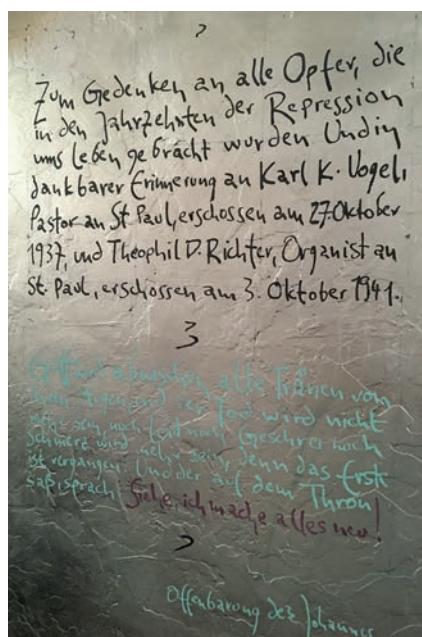 Zum Gedenken an alle Opfer, die
in den Jahrzehnten der Repression
ums Leben gebracht wurden Und in
dankbarer Erinnerung an Karl K. Vogel,
Pastor an St Paul, erschossen am 27. Oktober
1937, und Theophil D. Richter, Organist an
St. Paul, erschossen am 3. Oktober 1941.
Gott wird abwischen alle Tränen von
ihren Augen, und der Tod wird nicht
mehr sein, noch Leid noch Geschrei noch
Schmerz wird mehr sein, denn das Erste
ist vergangen. Und der auf dem Thron
saß, sprach: Siehe, ich mache alles neu!
Offenbarung des Johannes